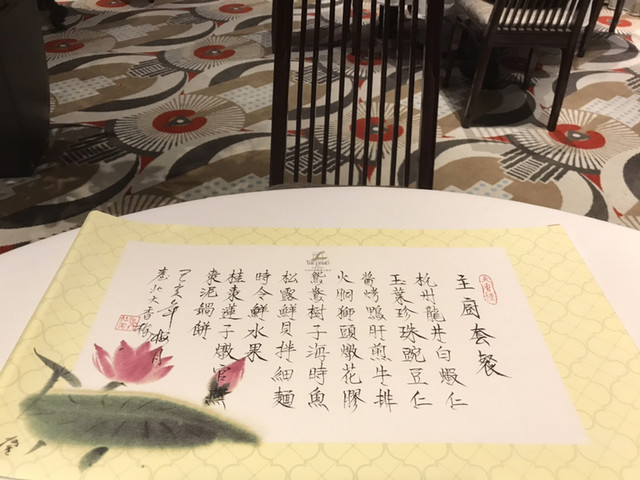 主廚套餐
杭州龍井白蝦仁
玉菜珍珠豌豆仁
醬烤鴨肝煎牛排
火胴獅頭燉花膠
鴛鴦樹子海時魚
松露鮮貝拌細麵
時令鮮水果
桂棗蓮子燉官燕
棗泥鍋餅
己亥年梅月